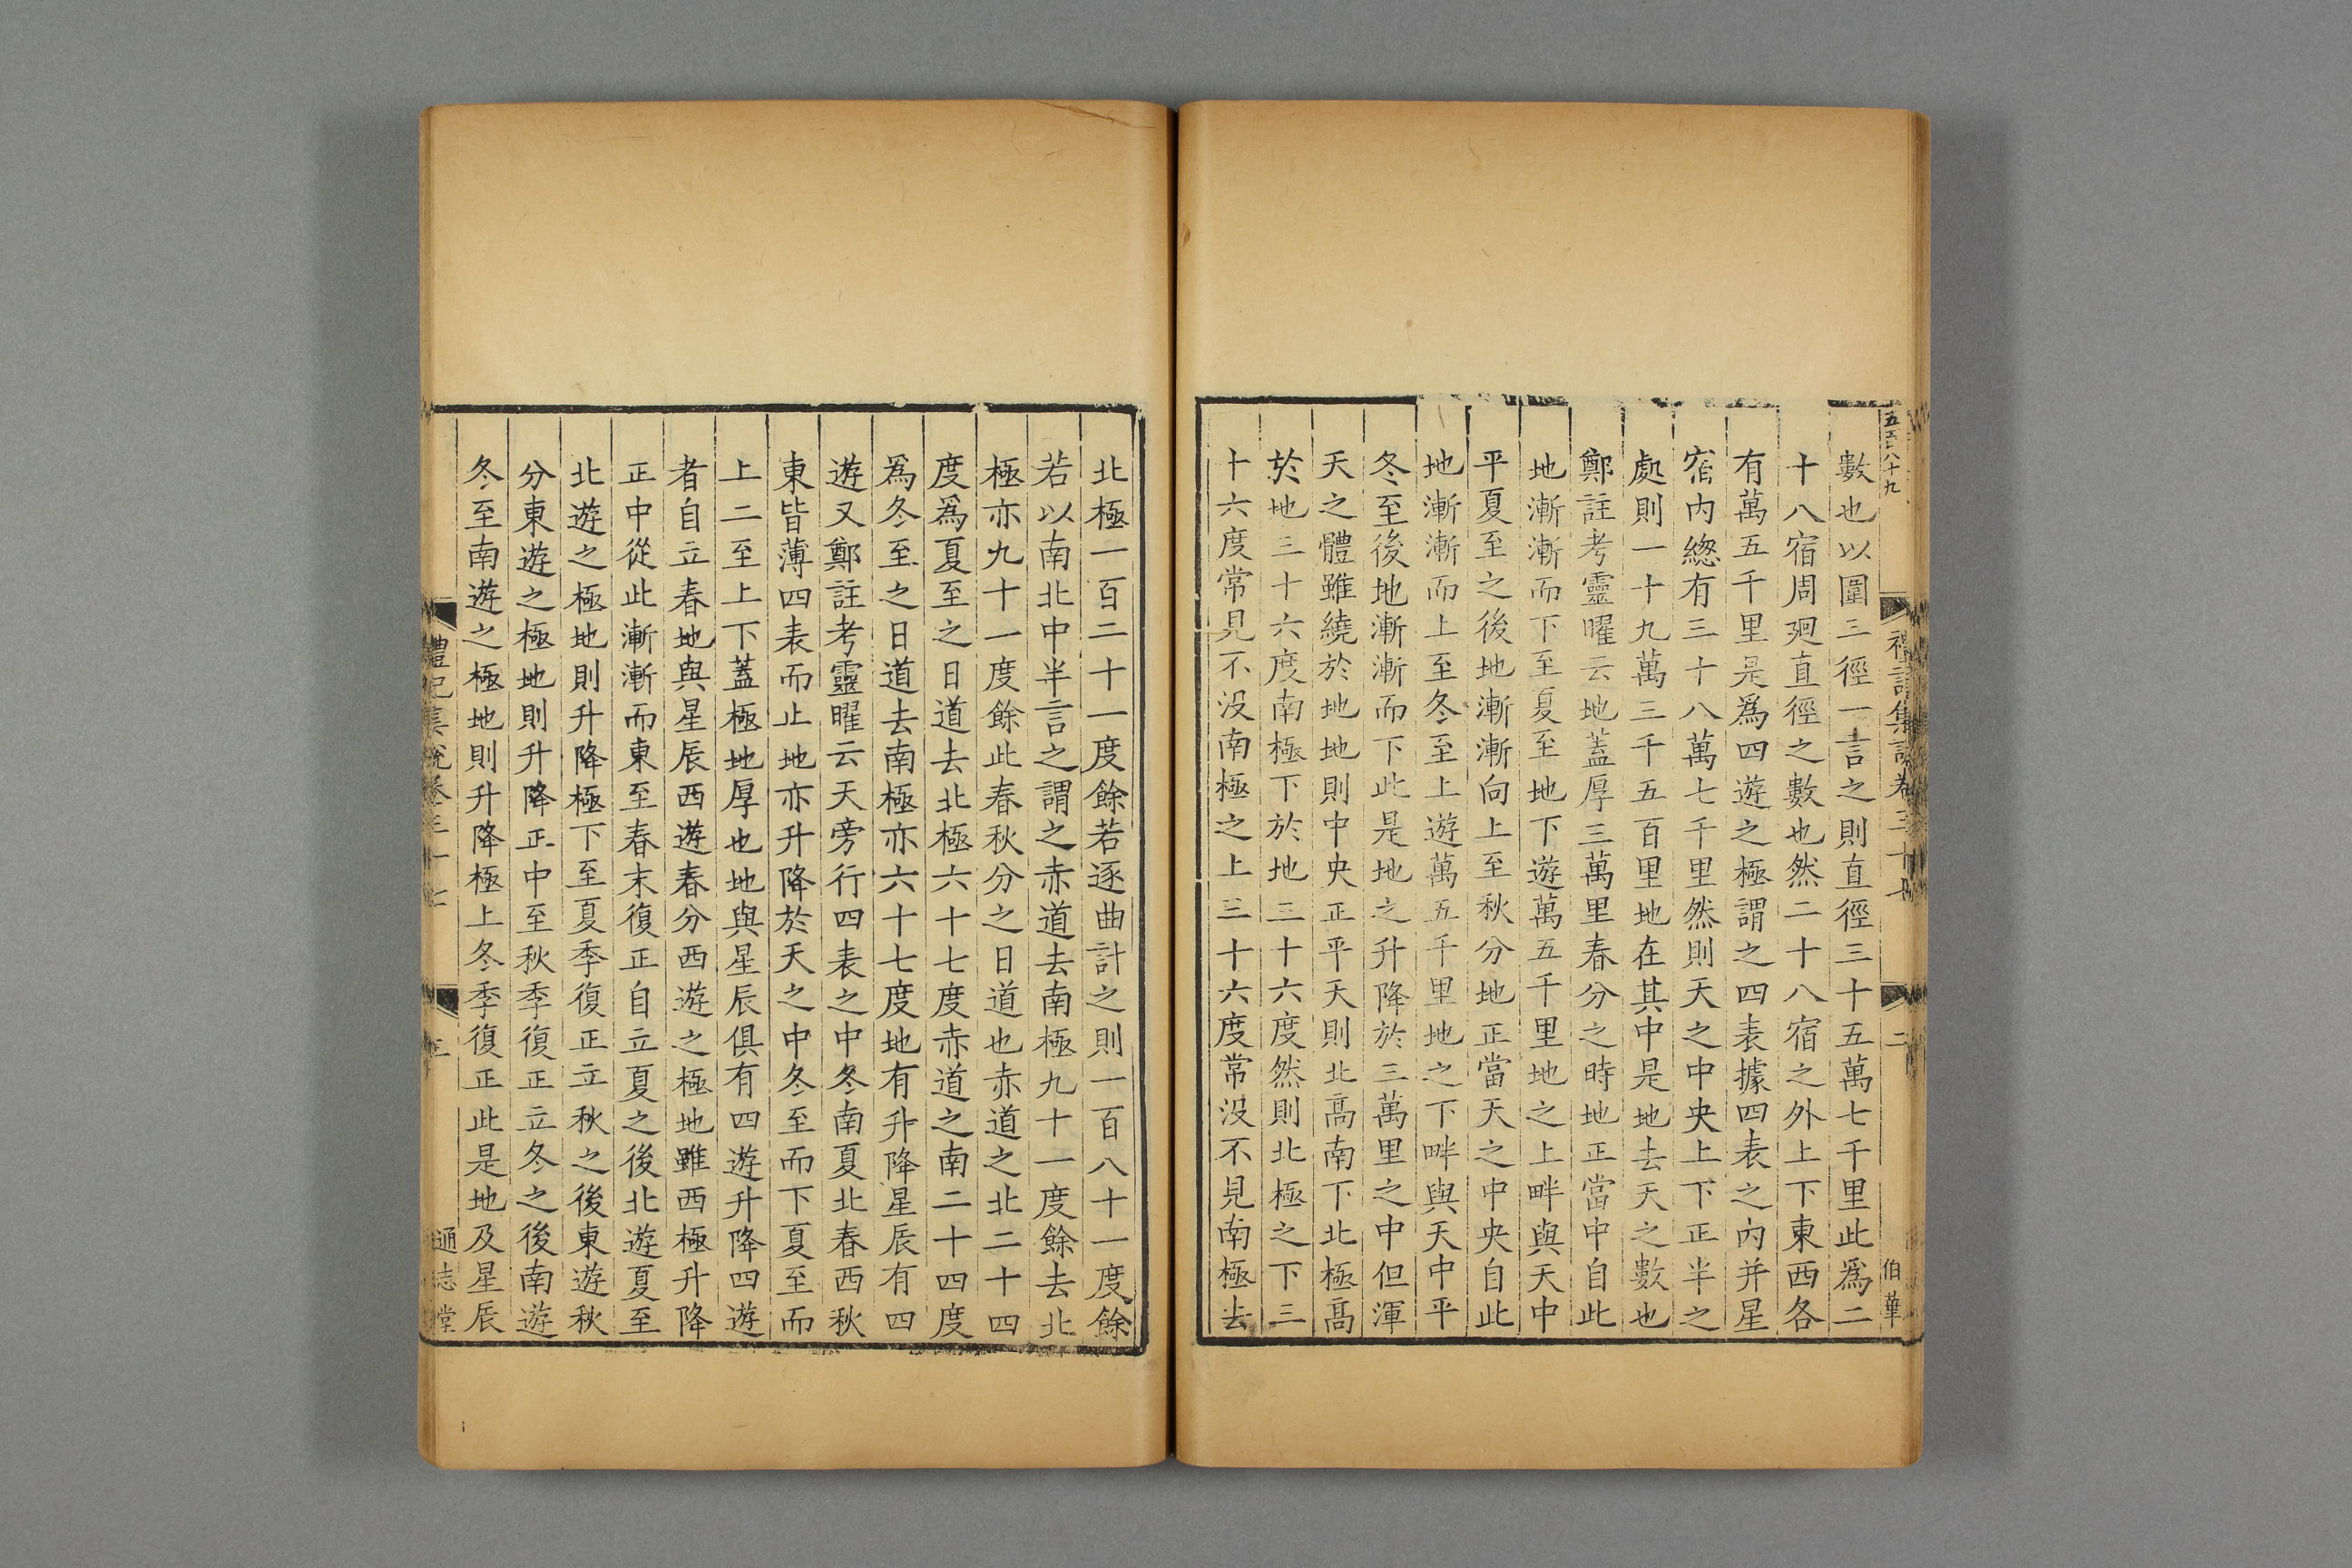 五百八十九
禮記集說卷三十七
二
伯華
數也以圍三徑一言之則直徑三十五萬七千里此爲二
十八宿周廻直徑之數也然二十八宿之外上下東西各
有萬五千里是爲四遊之極謂之四表據四表之內并星
宿內緫有三十八萬七千里然則天之中央上下正半之
處則一十九萬三千五百里地在其中是地去天之數也
鄭註考靈曜云地蓋厚三萬里春分之時地正當中自此
地漸漸而下至夏至地下遊萬五千里地之上畔與天中
平夏至之後地漸漸向上至秋分地正當天之中央自此
地漸漸而上至冬至上遊萬五千里地之下畔與天中平
冬至後地漸漸而下此是地之升降於三萬里之中但渾
天之體雖繞於地地則中央正平天則北高南下北極高
於地三十六度南極下於地三十六度然則北極之下三
十六度常見不没南極之上三十六度常没不見南極去
北極一百二十一度餘若逐曲計之則一百八十一度餘
若以南北中半言之謂之赤道去南極九十一度餘去北
極亦九十一度餘此春秋分之日道也赤道之北二十四
度爲夏至之日道去北極六十七度赤道之南二十四度
爲冬至之日道去南極亦六十七度地有升降星辰有四
遊又鄭註考靈曜云天旁行四表之中冬南夏北春西秋
東皆薄四表而止地亦升降於天之中冬至而下夏至而
上二至上下蓋極地厚也地與星辰俱有四遊升降四遊
者自立春地與星辰西遊春分西遊之極地雖西極升降
正中從此漸漸而東至春末復正自立夏之後北遊夏至
北遊之極地則升降極下至夏季復正立秋之後東遊秋
分東遊之極地則升降正中至秋季復正立冬之後南遊
冬至南遊之極地則升降極上冬季復正此是地及星辰
禮記集說卷三十七
三
通志堂